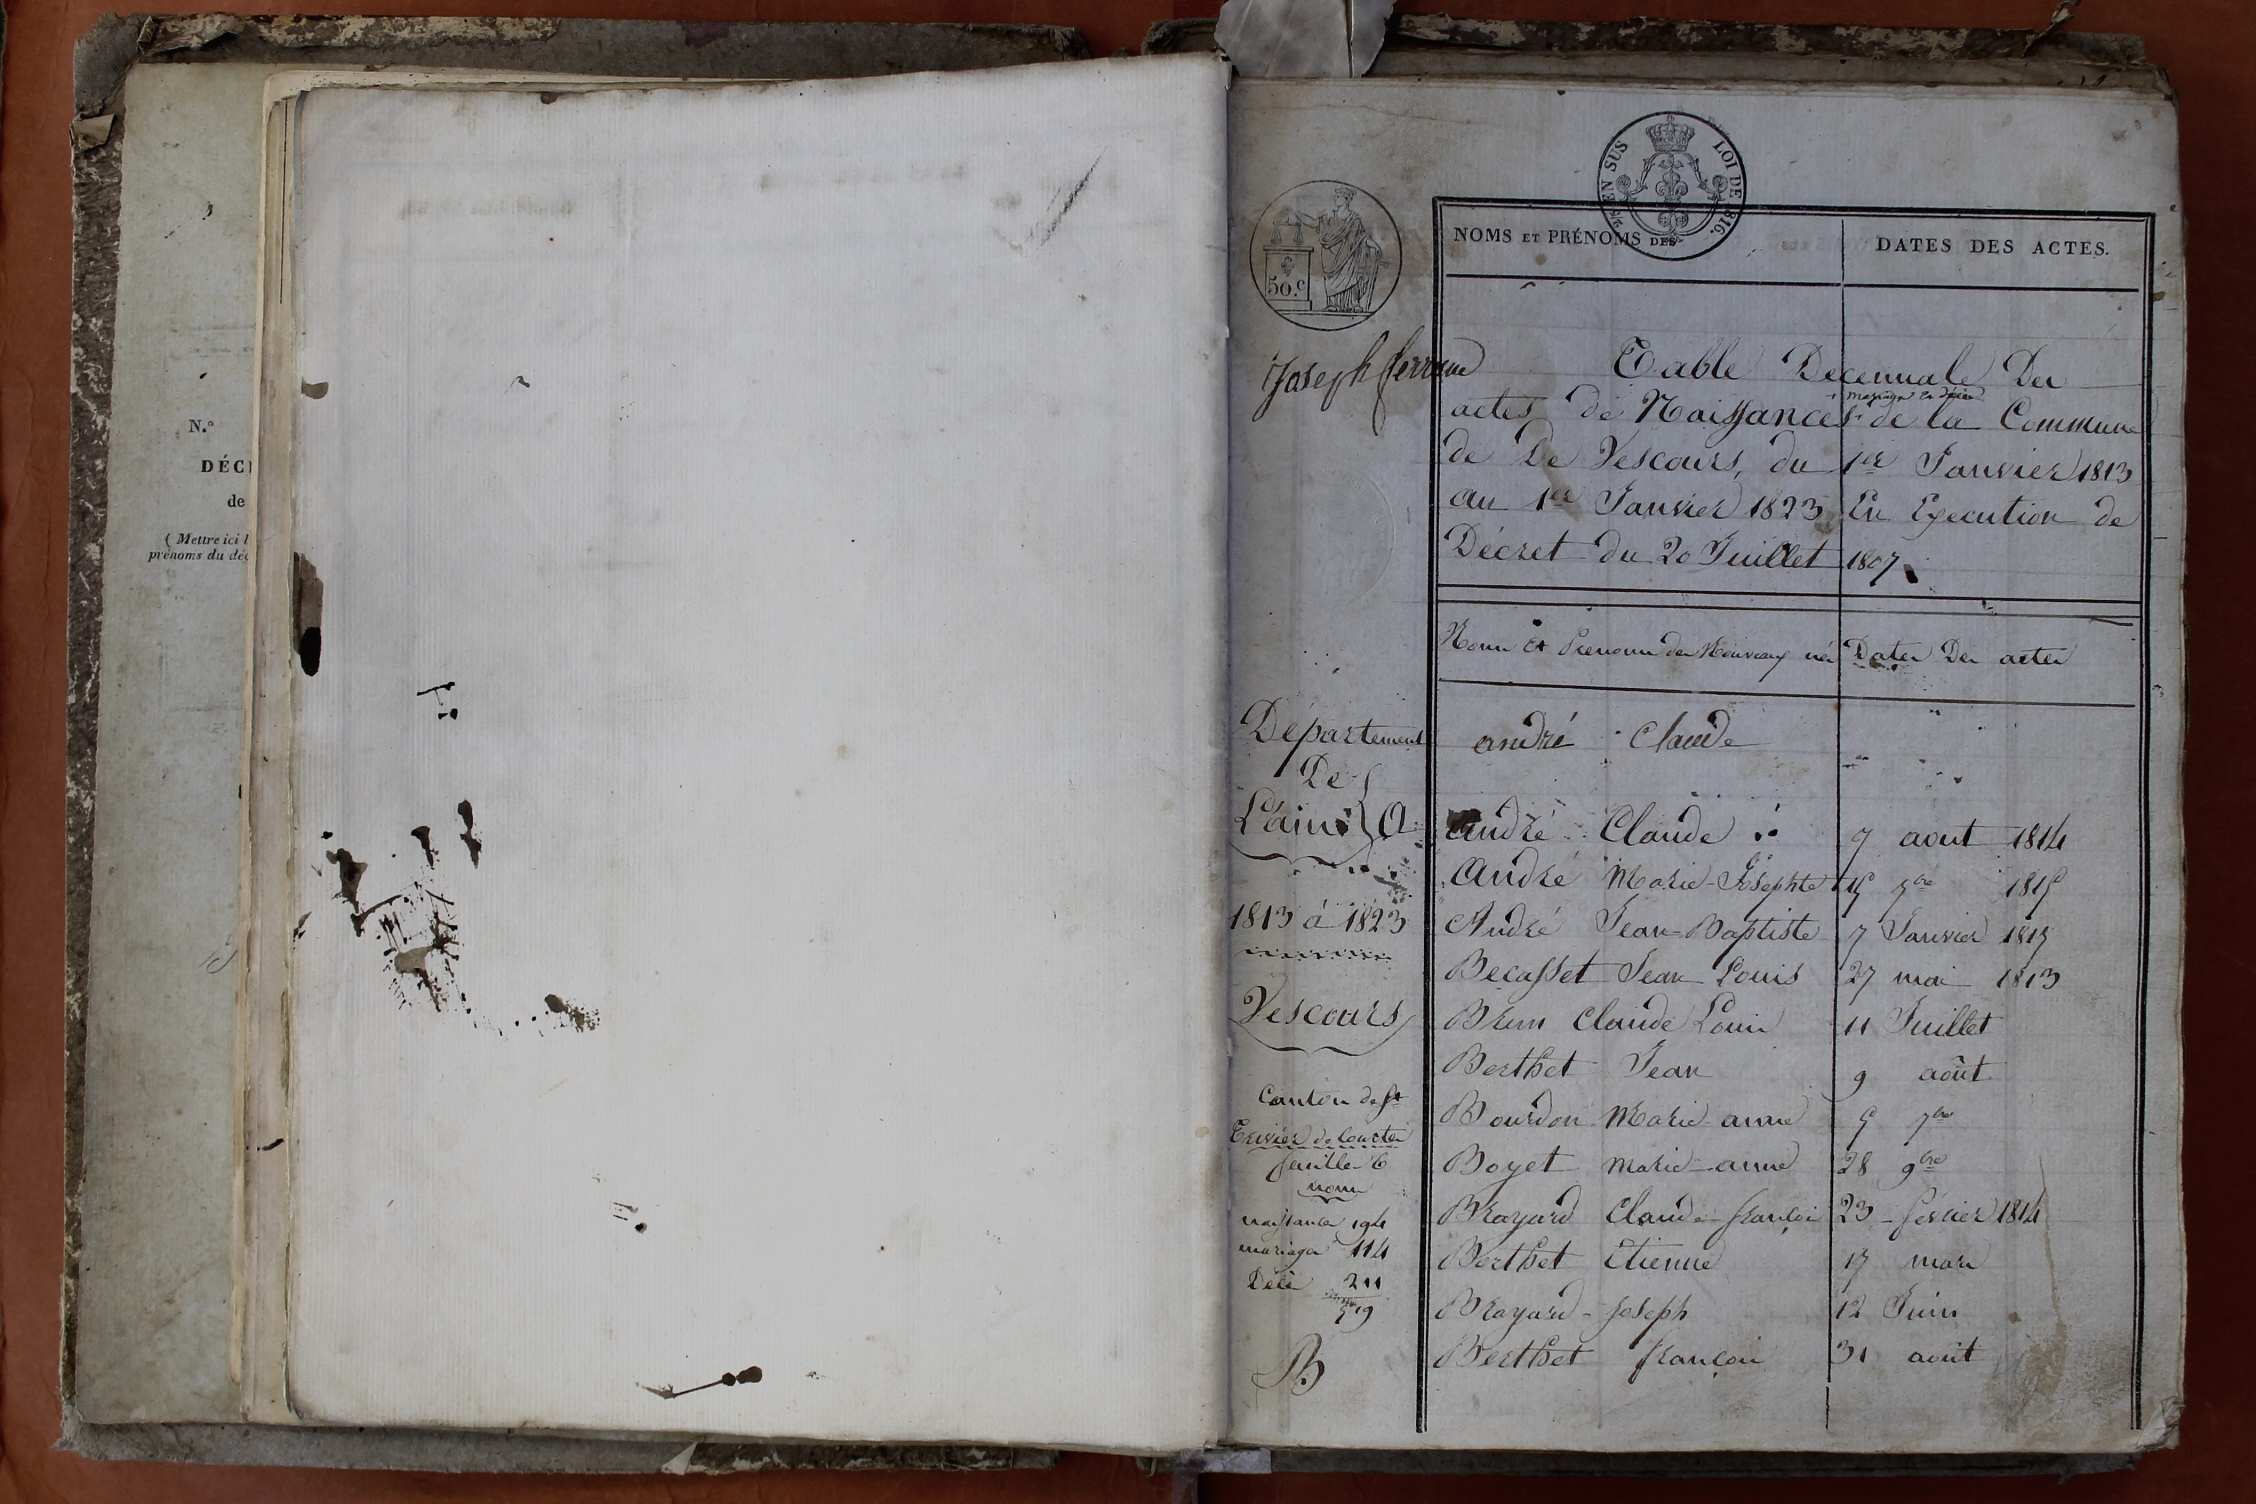 N.º
DÉC
de
( Mettre ici l
prénoms du déc
EN SUS
LOI DE 1816.
50.c
NOMS ET PRÉNOMS DES
DATES DES ACTES.
Joseph
Table Decennale Des
mariage et décès
actes de Naissances de la Commune
de De Vescours, du 1er Janvier 1813
au 1er Janvier 1823 En Execution de
Décret du 20 Juillet 1807
Noms Et Prenoms des Nouveaux nés Dates Des actes
Departement
De
L'ain
1813 à 1823
Vescours
Canton de St
Trivier de Courtes
feuille 6
noms
naissances 194
mariages 114
Décès 211
519
andré Claude
A
andré Claude 9 aout 1814
André Marie-Josephte 15 7bre 1815
André Jean-Baptiste 7 Janvier 1815
Becasset Jean Louis 27 mai 1813
Brun Claude Louis 11 Juillet
Berthet Jean 9 août
Bourdon Marie-anne 5 7bre
Boyet marie-anne 28 9bre
Brayard Claude-françois 23 février 1814
Berthet Etienne 17 mars
Brayard-Joseph 12 Juin
B
Berthet françois 31 août